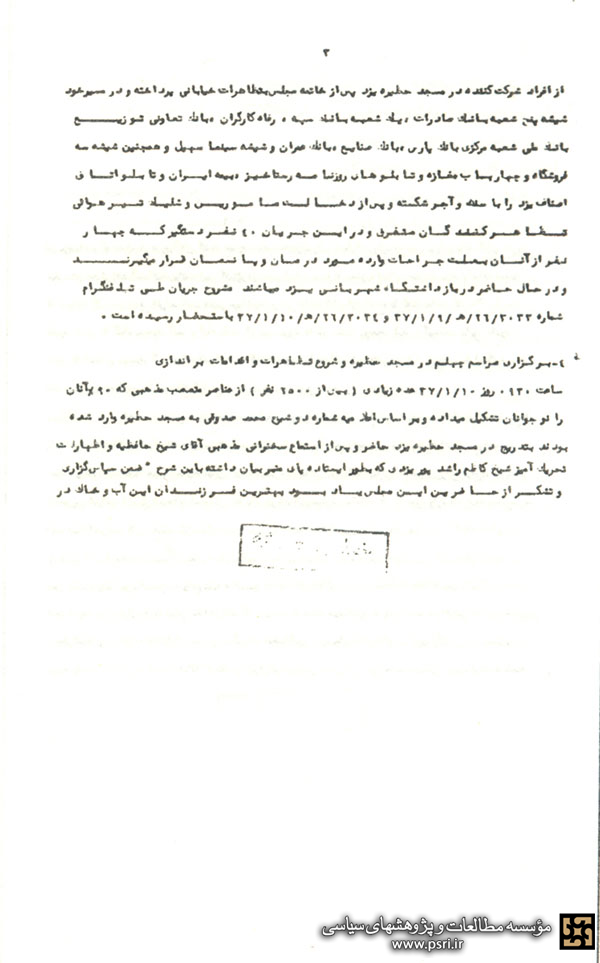 ۳
از افراد شرکت کننده در مسجد حظیره یزد پس از خاتمه مجلس بتظاهرات خیابانی پرداخته و در مسیر خود
شیشه پنج شعبه بانك صادرات ، یك شعبه بانك سپه ، رفاه کارگران ، بانك تعاونی توزیع
بانك ملی شعبه مرکزی بانك پارس ، بانك صنایع ، بانك عمران و شیشه سینما سهیل و همچنین شیشه سه
فروشگاه و چهار باب مغازه و تابلوهای روزنامه رستاخیز ، بیمه ایران و تابلو اتاق
اصناف یزد را با سنگ و آجر شکسته و پس از دخالت مامورین و شلیك تیر هوائی
تظاهر کنندگان متفرق و در این جریان ۴۰ نفر دستگیر که چهار
نفر از آنان بعلت جراحات وارده مورد درمان و پانسمان قرار میگیرند
و در حال حاضر در بازداشتگاه شهربانی یزد میباشند مشروح جریان طی تلفنگرام
شماره ۲۶/۳۰۳۳/ه‍ - ۳۷/۱/۹ و ۲۶/۳۰۳۴/ه‍ - ۳۷/۱/۱۰ باستحضار رسیده است .
۴- برگزاری مراسم چهلم در مسجد حظیره و شروع تظاهرات و اقدامات براندازی
ساعت ۰۹۳۰ روز ۳۷/۱/۱۰ عده زیادی ( بیش از ۲۵۰۰ نفر ) از عناصر متعصب مذهبی که ۹۰٪ آنان
را نوجوانان تشکیل میداده و بر اساس اعلامیه شماره دو شیخ محمد صدوقی به مسجد حظیره وارد شده
بودند بتدریج در مسجد حظیره یزد حاضر و پس از استماع سخنرانی مذهبی آقای شیخ حافظیه و اظهارات
تحریك آمیز شیخ کاظم راشد پور یزدی که بطور ایستاده پای منبر بیان داشته باین شرح " ضمن سپاس گزاری
و تشکر از حاضرین این مجلس یاد بود بهترین فرزندان این آب و خاك در
مؤسسه مطالعات و پژوهشهای سیاسی
www.psri.ir